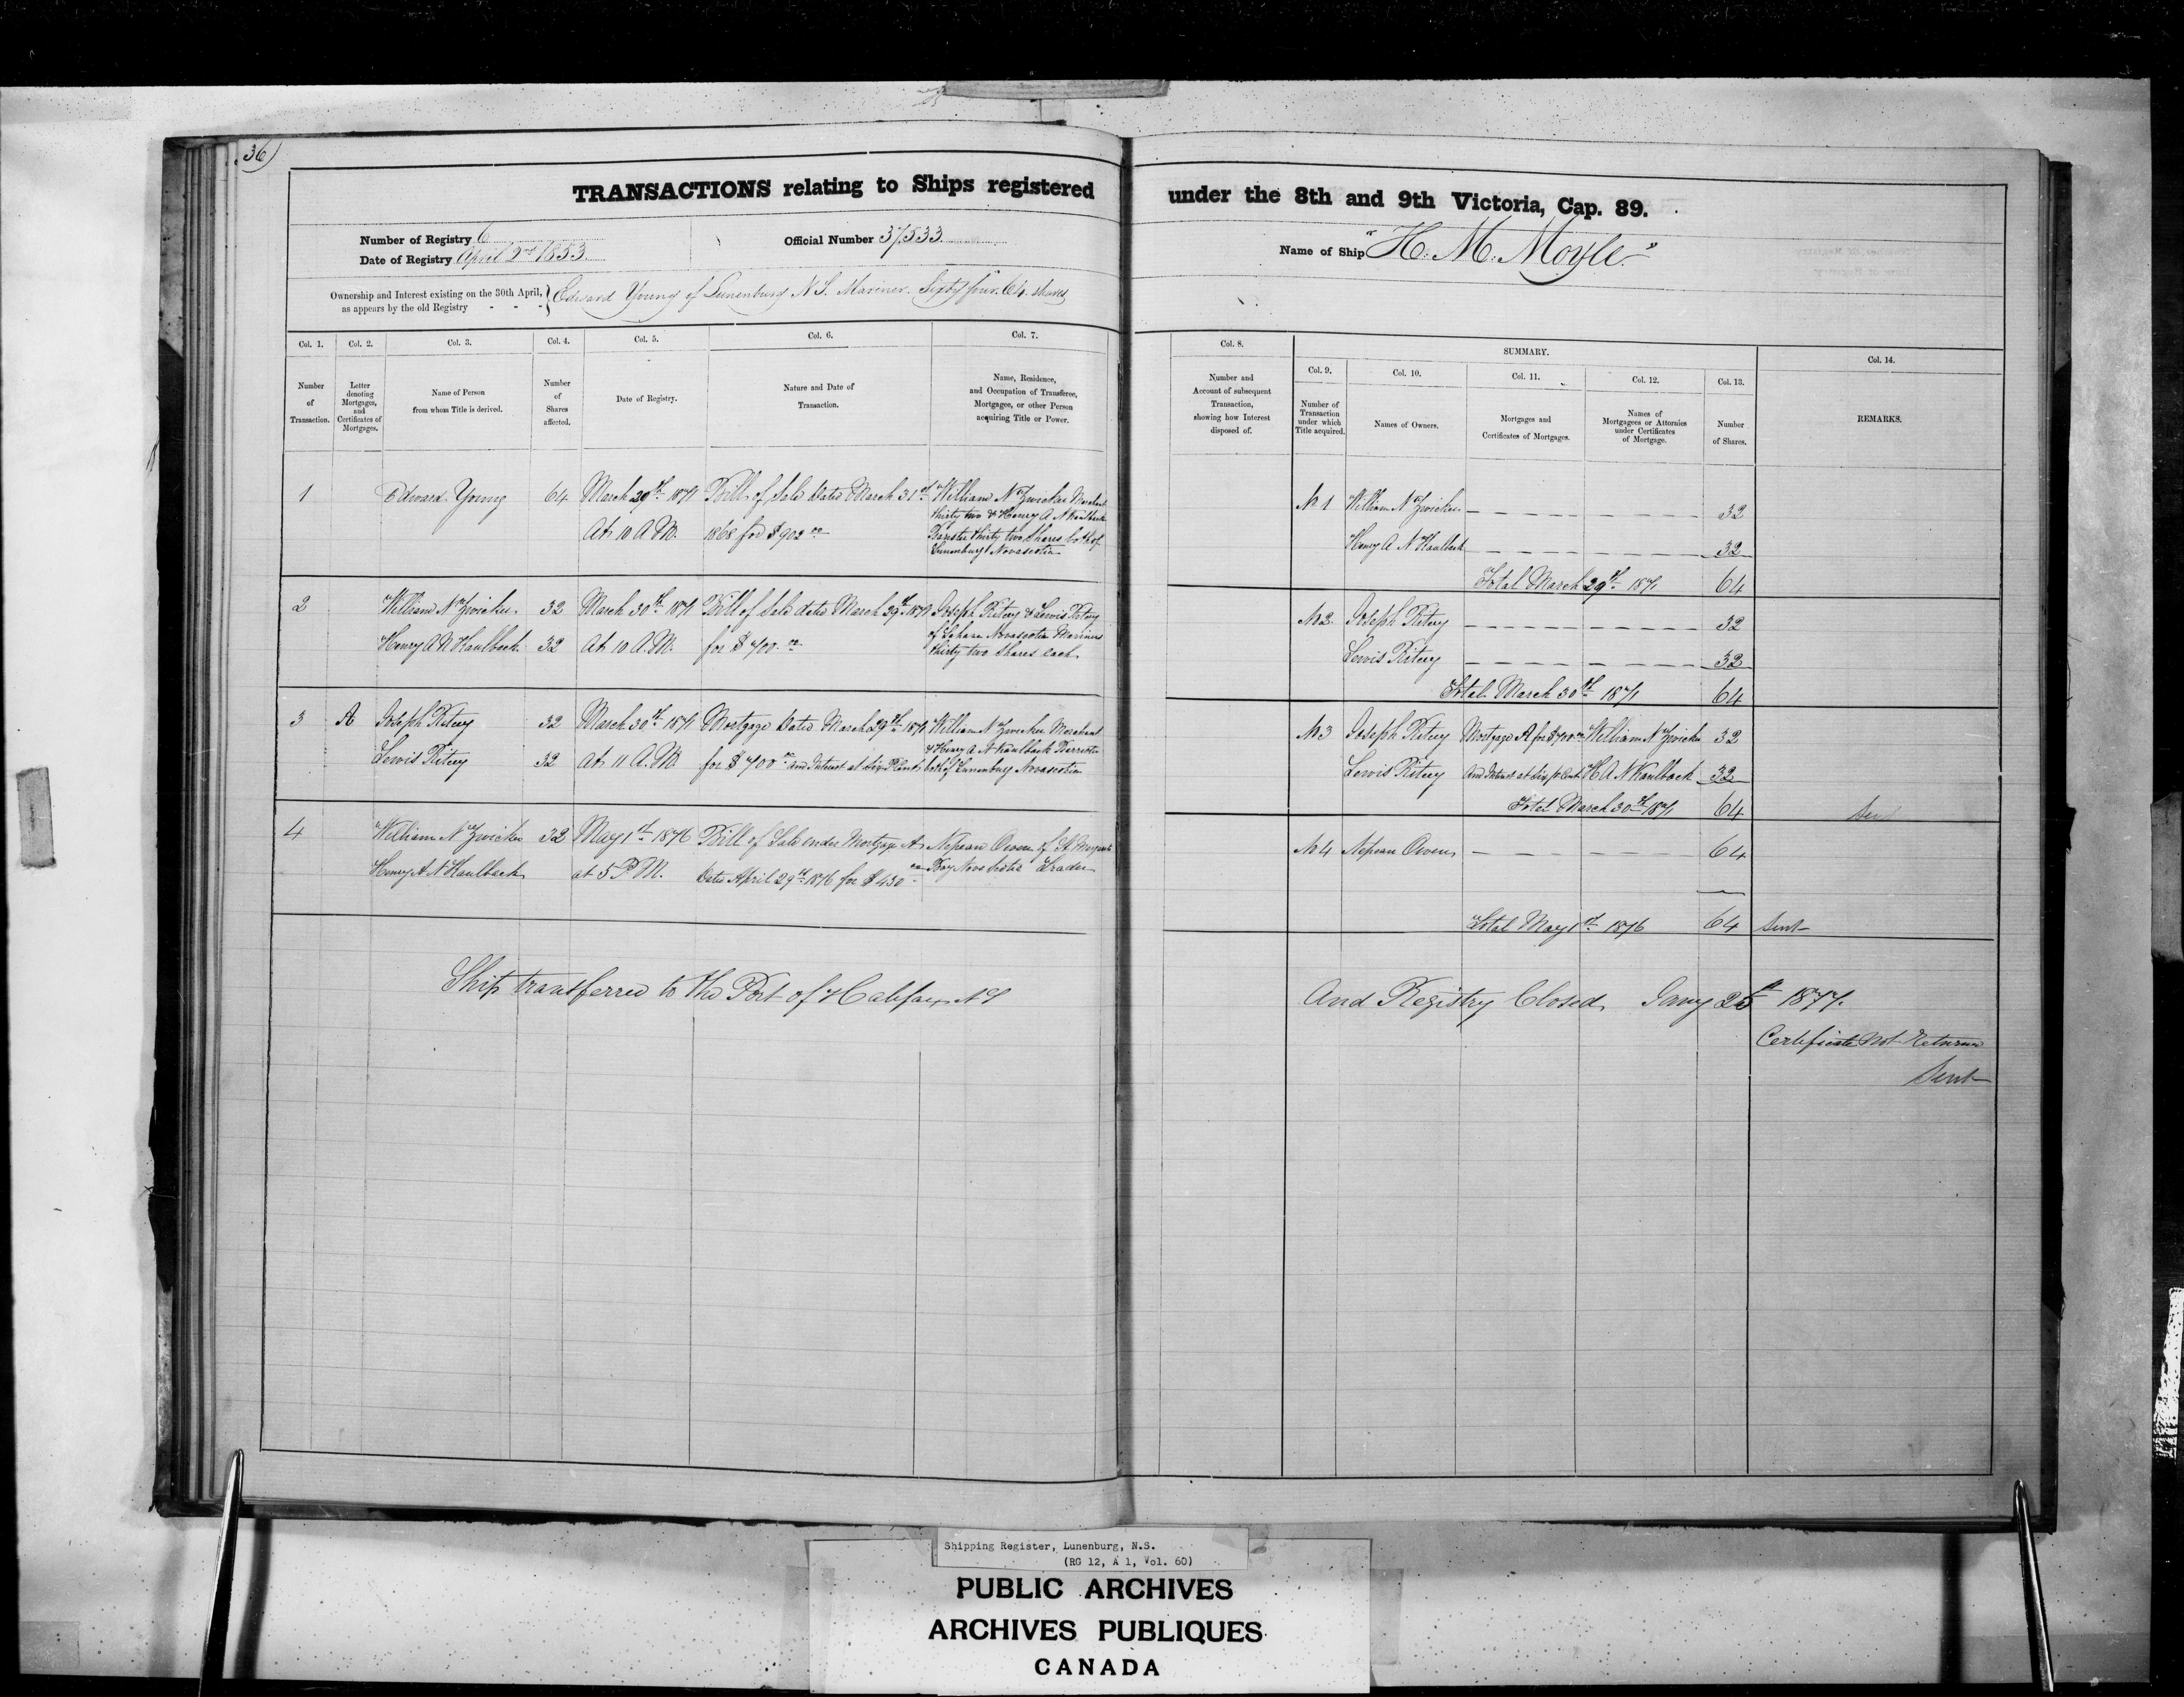 36)
TRANSACTIONS relating to Ships registered
Number of Registry 6
Date of Registry April 2nd 1853
Official Number 37,533
Ownership and Interest existing on the 30th April,
as appears by the old Registry - - -
Edward Young of Lunenburg N.S. Mariner. Sixty four. 64. shares
Col. 1. Col. 2. Col. 3. Col. 4. Col. 5. Col. 6. Col. 7.
Number of Transaction.
Letter denoting Mortgages, and Certificates of Mortgages.
Name of Person from whom Title is derived.
Number of Shares affected.
Date of Registry.
Nature and Date of Transaction.
Name, Residence, and Occupation of Transferee, Mortgagee, or other Person acquiring Title or Power.
1 Edward Young 64 March 29th 1871 Bill of Sale Dated March 31st William N Zwicker Merchant
thirty two & Henry A N Kaulback
At 10 A.M. 1868 for $902 00 Barrister thirty two Shares both of
Lunenburg Novascotia
2 William N Zwicker 32 March 30th 1871 Bill of Sale dated March 29th 1871 Joseph Ritcey & Lewis Ritcey
of Lahave Novascotia Mariners
Henry A N Kaulback 32 At 10 A.M. for $400. 00 thirty two Shares each
3 A Joseph Ritcey 32 March 30th 1871 Mortgage Dated March 29th 1871 William N Zwicker Merchant
& Henry A N Kaulback Barrister
Lewis Ritcey 32 At 11 A.M. for $400 00 and Interest at Six P Cent both of Lunenburg Novascotia
4 William N Zwicker 32 May 1st 1876 Bill of Sale under Mortgage A Nepean Owen of St Margarets
Henry A N Kaulback at 5 P.M. Dated April 29th 1876 for $430 00 Bay Nova Scotia Trader
Ship transferred to the Port of Halifax NS
under the 8th and 9th Victoria, Cap. 89.
Name of Ship "H. M. Moyle."
Col. 8. SUMMARY. Col. 14.
Col. 9. Col. 10. Col. 11. Col. 12. Col. 13.
Number and Account of subsequent Transaction, showing how Interest disposed of.
Number of Transaction under which Title acquired.
Names of Owners.
Mortgages and Certificates of Mortgages.
Names of Mortgagees or Attornies under Certificates of Mortgage.
Number of Shares.
REMARKS.
No 1 William N Zwicker 32
Henry A N Kaulback 32
Total March 29th 1871 64
No 2. Joseph Ritcey 32
Lewis Ritcey 32
Total March 30th 1871 64
No 3 Joseph Ritcey Mortgage A for $400 00 William N Zwicker 32
Lewis Ritcey and Interest at Six p Cent H A N Kaulback 32
Total March 30th 1871 64 Sent
No 4 Nepean Owen 64
Total May 1st 1876 64 Sent
And Registry Closed Jany 25th 1877.
Certificate Not Returned
Sent
Shipping Register, Lunenburg, N.S.
(RG 12, A 1, Vol. 60)
PUBLIC ARCHIVES
ARCHIVES PUBLIQUES
CANADA